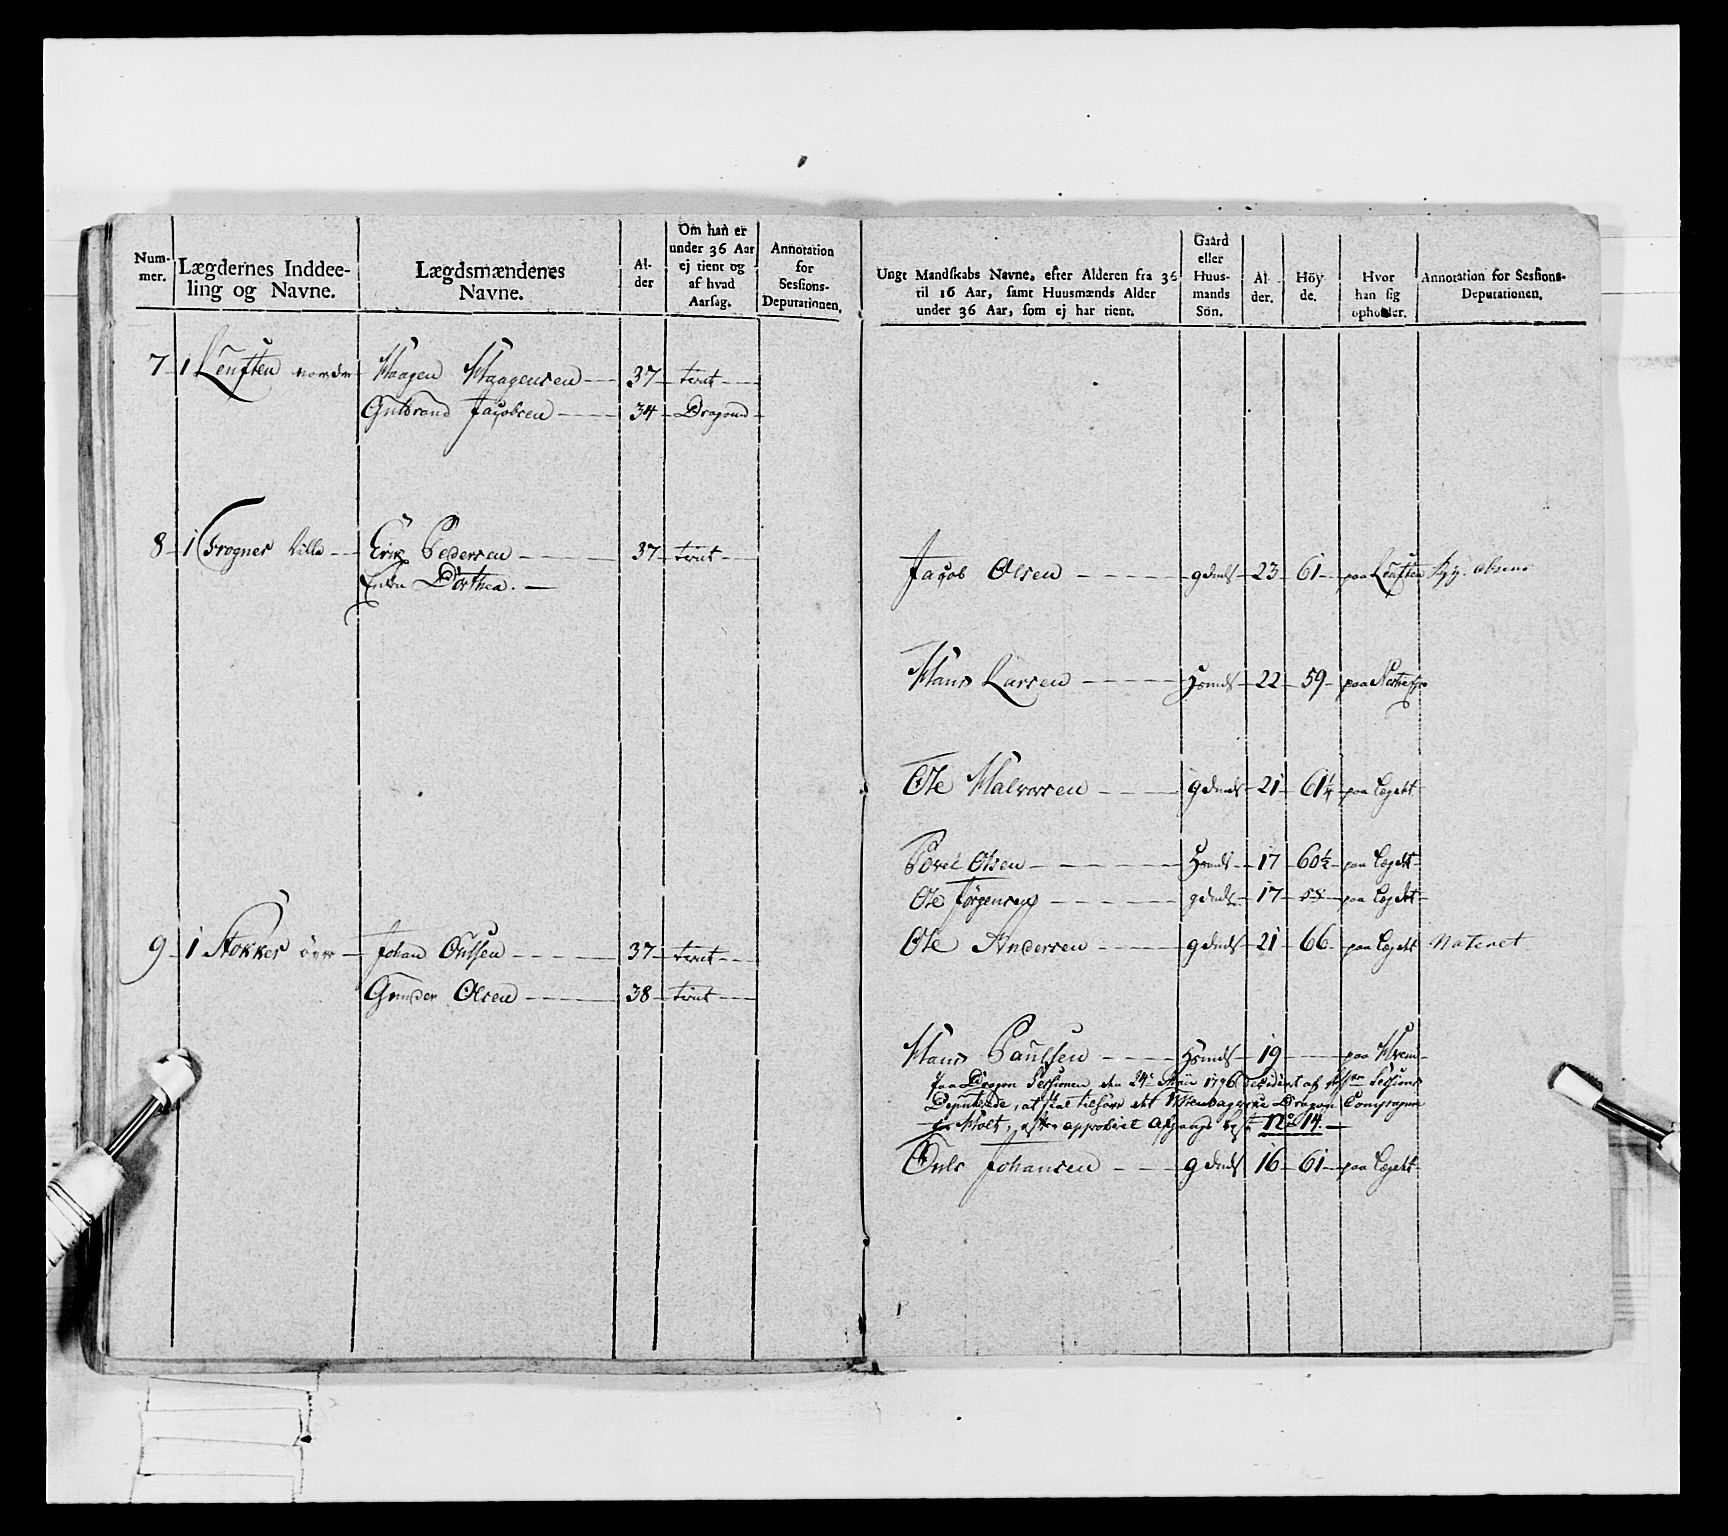 Num-
mer.
Lægdernes Inddee-
ling og Navne.
Lægdsmændenes
Navne.
Al-
der
Om han er
under 36 Aar
ej tient og
af hvad
Aarsag.
Annotation
for
Sessions-
Deputationen.
7 1 Leuften nordre Haagen Haagensen 37 tient
Gulbrand Jacobsen 34 Dragoun
8 1 Frogner lille Erik Pedersen 37 tient
Enke Dorthea.
9 1 Stokker övre Johan Oulsen 37 tient
Gunder Olsen 38 tient
Ungt Mandskabs Navne, efter Alderen fra 36
til 16 Aar, samt Huusmænds Alder
under 36 Aar, som ej har tient.
Gaard
eller
Huus-
mands
Sön.
Al-
der.
Höy-
de.
Hvor
han sig
opholder.
Annotation for Sessions-
Deputationen.
Jacob Olsen gdmds 23 61 paa Leuften
Hans Larsen Hsmds 22 59 paa
Ole Halvorsen gdmds 21 61¼ paa Legdet
Povel Olsen Hsmds 17 60½ paa Legdet
Ole Jörgensen gdmds 17 58 paa Legdet
Ole Andersen gdmds 21 66 paa Legdet Noteret
Hans Paulsen Hsmds 19 paa
paa Dragon Sessionen den 24de 1796 af Sessions
Deputerede, at skal tilhöre det Dragon Compagnie
approberet Afgangs No 14.
Ouls Johansen gdmds 16 61 paa Legdet